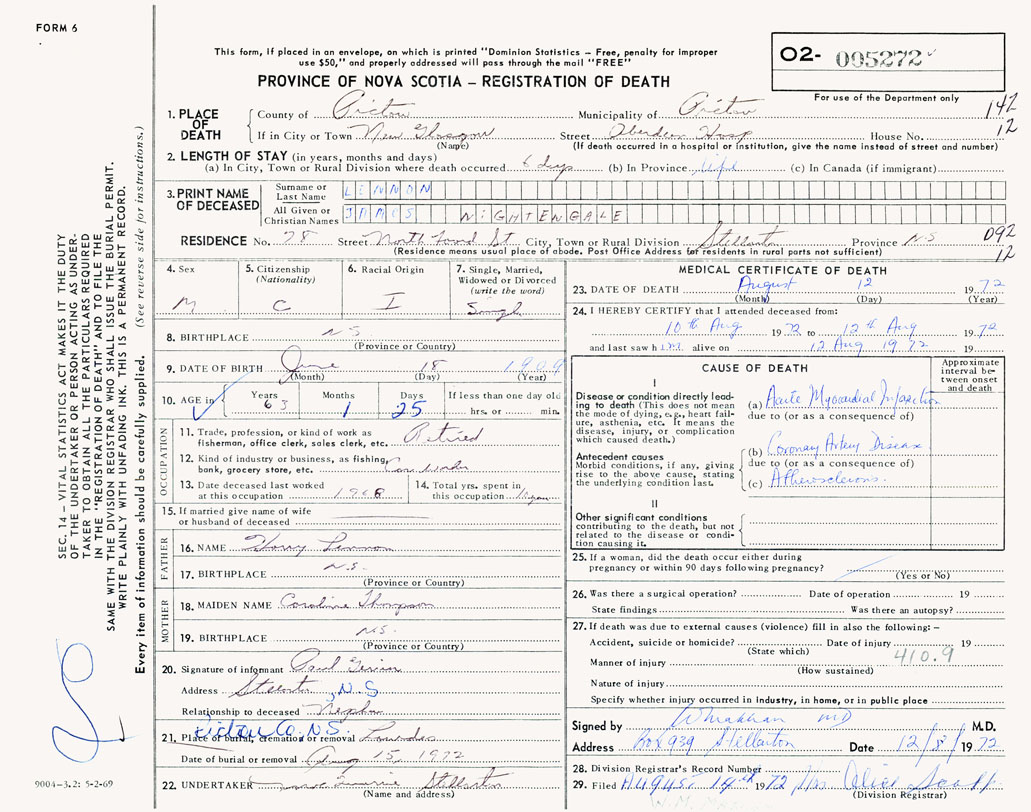 FORM 6
This form, if placed in an envelope, on which is printed "Dominion Statistics – Free, penalty for improper
use $50," and properly addressed will pass through the mail "FREE"
PROVINCE OF NOVA SCOTIA – REGISTRATION OF DEATH
02- 005272
For use of the Department only
142
12
1. PLACE OF DEATH
County of Pictou Municipality of Pictou
If in City or Town New Glasgow Street Aberdeen Hosp House No.
(Name) (If death occurred in a hospital or institution, give the name instead of street and number)
2. LENGTH OF STAY (in years, months and days)
(a) In City, Town or Rural Division where death occurred 6 days (b) In Province Life (c) In Canada (if immigrant)
3. PRINT NAME OF DECEASED
Surname or Last Name LENNON
All Given or Christian Names JAMES NIGHTENGALE
RESIDENCE No. 78 Street North Foord St. City, Town or Rural Division Stellarton Province N.S
092
12
(Residence means usual place of abode. Post Office Address for residents in rural parts not sufficient)
4. Sex
M
5. Citizenship
(Nationality)
C
6. Racial Origin
I
7. Single, Married,
Widowed or Divorced
(write the word)
Single
8. BIRTHPLACE N.S.
(Province or Country)
9. DATE OF BIRTH June 18 1909
(Month) (Day) (Year)
10. AGE in Years 63 Months 1 Days 25 If less than one day old
hrs. or min.
OCCUPATION
11. Trade, profession, or kind of work as
fisherman, office clerk, sales clerk, etc. Retired
12. Kind of industry or business, as fishing,
bank, grocery store, etc. Car Worker
13. Date deceased last worked
at this occupation 1968
14. Total yrs. spent in
this occupation
15. If married give name of wife
or husband of deceased
FATHER
16. NAME Lennon
17. BIRTHPLACE N.S.
(Province or Country)
MOTHER
18. MAIDEN NAME Caroline Thompson
19. BIRTHPLACE N.S.
(Province or Country)
20. Signature of informant Paul
Address Stellarton, N.S
Relationship to deceased Nephew
Pictou Co. N.S.
21. Place of burial, cremation or removal Lourdes
Date of burial or removal Aug 15, 1972
22. UNDERTAKER Stellarton
(Name and address)
MEDICAL CERTIFICATE OF DEATH
23. DATE OF DEATH August 12 1972
(Month) (Day) (Year)
24. I HEREBY CERTIFY that I attended deceased from:
10th Aug 1972 to 12th Aug 1972
and last saw him alive on 12 Aug 1972 19
CAUSE OF DEATH
Approximate
interval be-
tween onset
and death
I
Disease or condition directly lead-
ing to death (This does not mean
the mode of dying, e.g., heart fail-
ure, asthenia, etc. It means the
disease, injury, or complication
which caused death.)
(a) Acute Myocardial Infarction
due to (or as a consequence of)
Antecedent causes
Morbid conditions, if any, giving
rise to the above cause, stating
the underlying condition last.
(b) Coronary Artery Disease
due to (or as a consequence of)
(c) Atherosclerosis.
II
Other significant conditions
contributing to the death, but not
related to the disease or condi-
tion causing it.
25. If a woman, did the death occur either during
pregnancy or within 90 days following pregnancy?
(Yes or No)
26. Was there a surgical operation? Date of operation 19
State findings Was there an autopsy?
27. If death was due to external causes (violence) fill in also the following: –
Accident, suicide or homicide? Date of injury 19
(State which)
410.9
Manner of injury
(How sustained)
Nature of injury
Specify whether injury occurred in industry, in home, or in public place
Signed by MD M.D.
Address Box 939 Stellarton Date 12/8/1972
28. Division Registrar's Record Number
29. Filed August 14th 1972 Mrs Alice Scott
(Division Registrar)
SEC. 14 – VITAL STATISTICS ACT MAKES IT THE DUTY
OF THE UNDERTAKER OR PERSON ACTING AS UNDER-
TAKER TO OBTAIN ALL THE PARTICULARS REQUIRED
IN THE "REGISTRATION OF DEATH" AND TO FILE THE
SAME WITH THE DIVISION REGISTRAR WHO SHALL ISSUE THE BURIAL PERMIT.
WRITE PLAINLY WITH UNFADING INK. THIS IS A PERMANENT RECORD.
Every item of information should be carefully supplied. (See reverse side for instructions.)
9004-3.2: 5-2-69